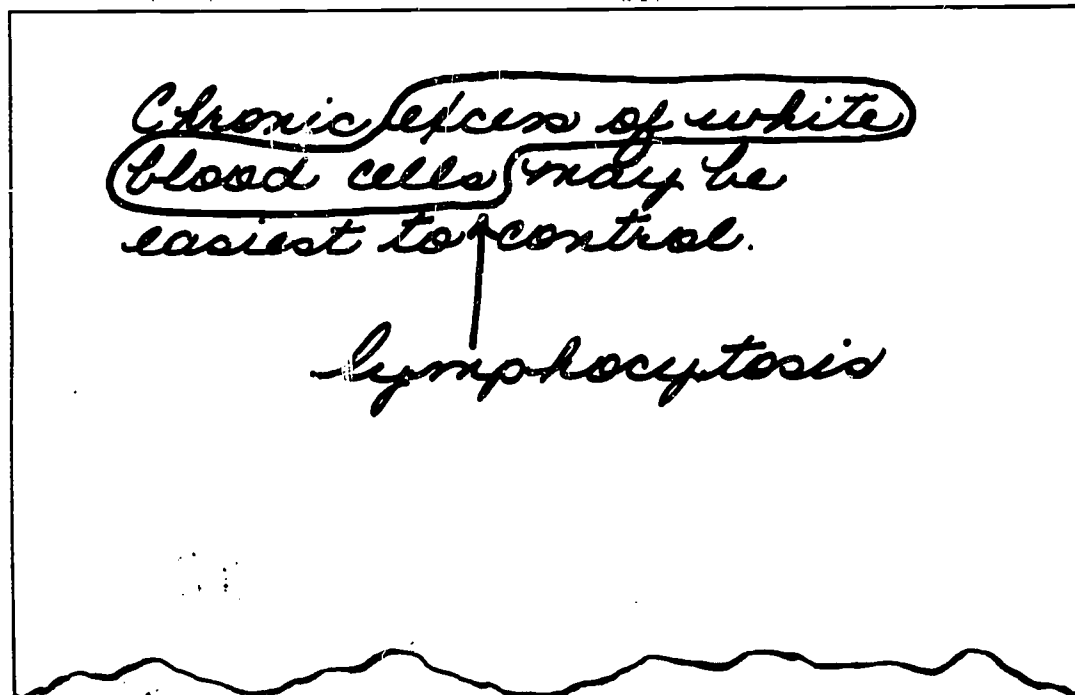 Chronic excess of white
blood cells may be
easiest to control.
lymphocytosis